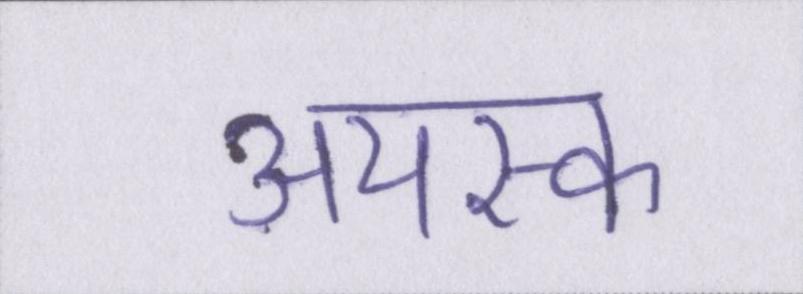 अयस्क